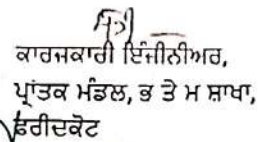 ਕਾਰਜਕਾਰੀ ਇੰਜੀਨੀਅਰ,
ਪ੍ਰਾਂਤਕ ਮੰਡਲ, ਭ ਤੇ ਮ ਸ਼ਾਖਾ,
ਫਰੀਦਕੋਟ